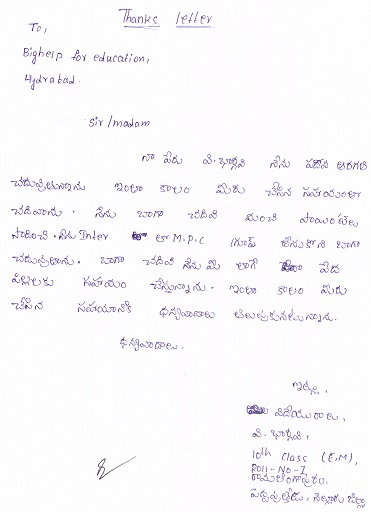 Thanks letter
To,
Bighelp for education,
Hydrabad.
Sir/madam
నా పేరు వి. భార్గవి నేను పదవ తరగతి
చదువుతున్నాను ఇంతా కాలం మీరు చేసిన సహయంతా
చదివాను. నేను బాగా చదివి మంచి పాయింట్లు
సాదించి. నేను Inter లా M.P.C గ్రూప్ తీసుకొని బాగా
చదువుతాను. బాగా చదివి నేను మీ లాగే పేద
పిల్లలకు సహయం చేస్తున్నాను. ఇంతా కాలం మీరు
చేసిన సహయానికి ధన్యవాదాలు తెలుపుకుంటున్నాను.
ధన్యవాదాలు.
ఇట్లు,
విదేయురాలు,
వి. భార్గవి,
10th class (E.M),
Roll-No-I
రామలింగాపురం,
నెల్లూరు జిల్లా